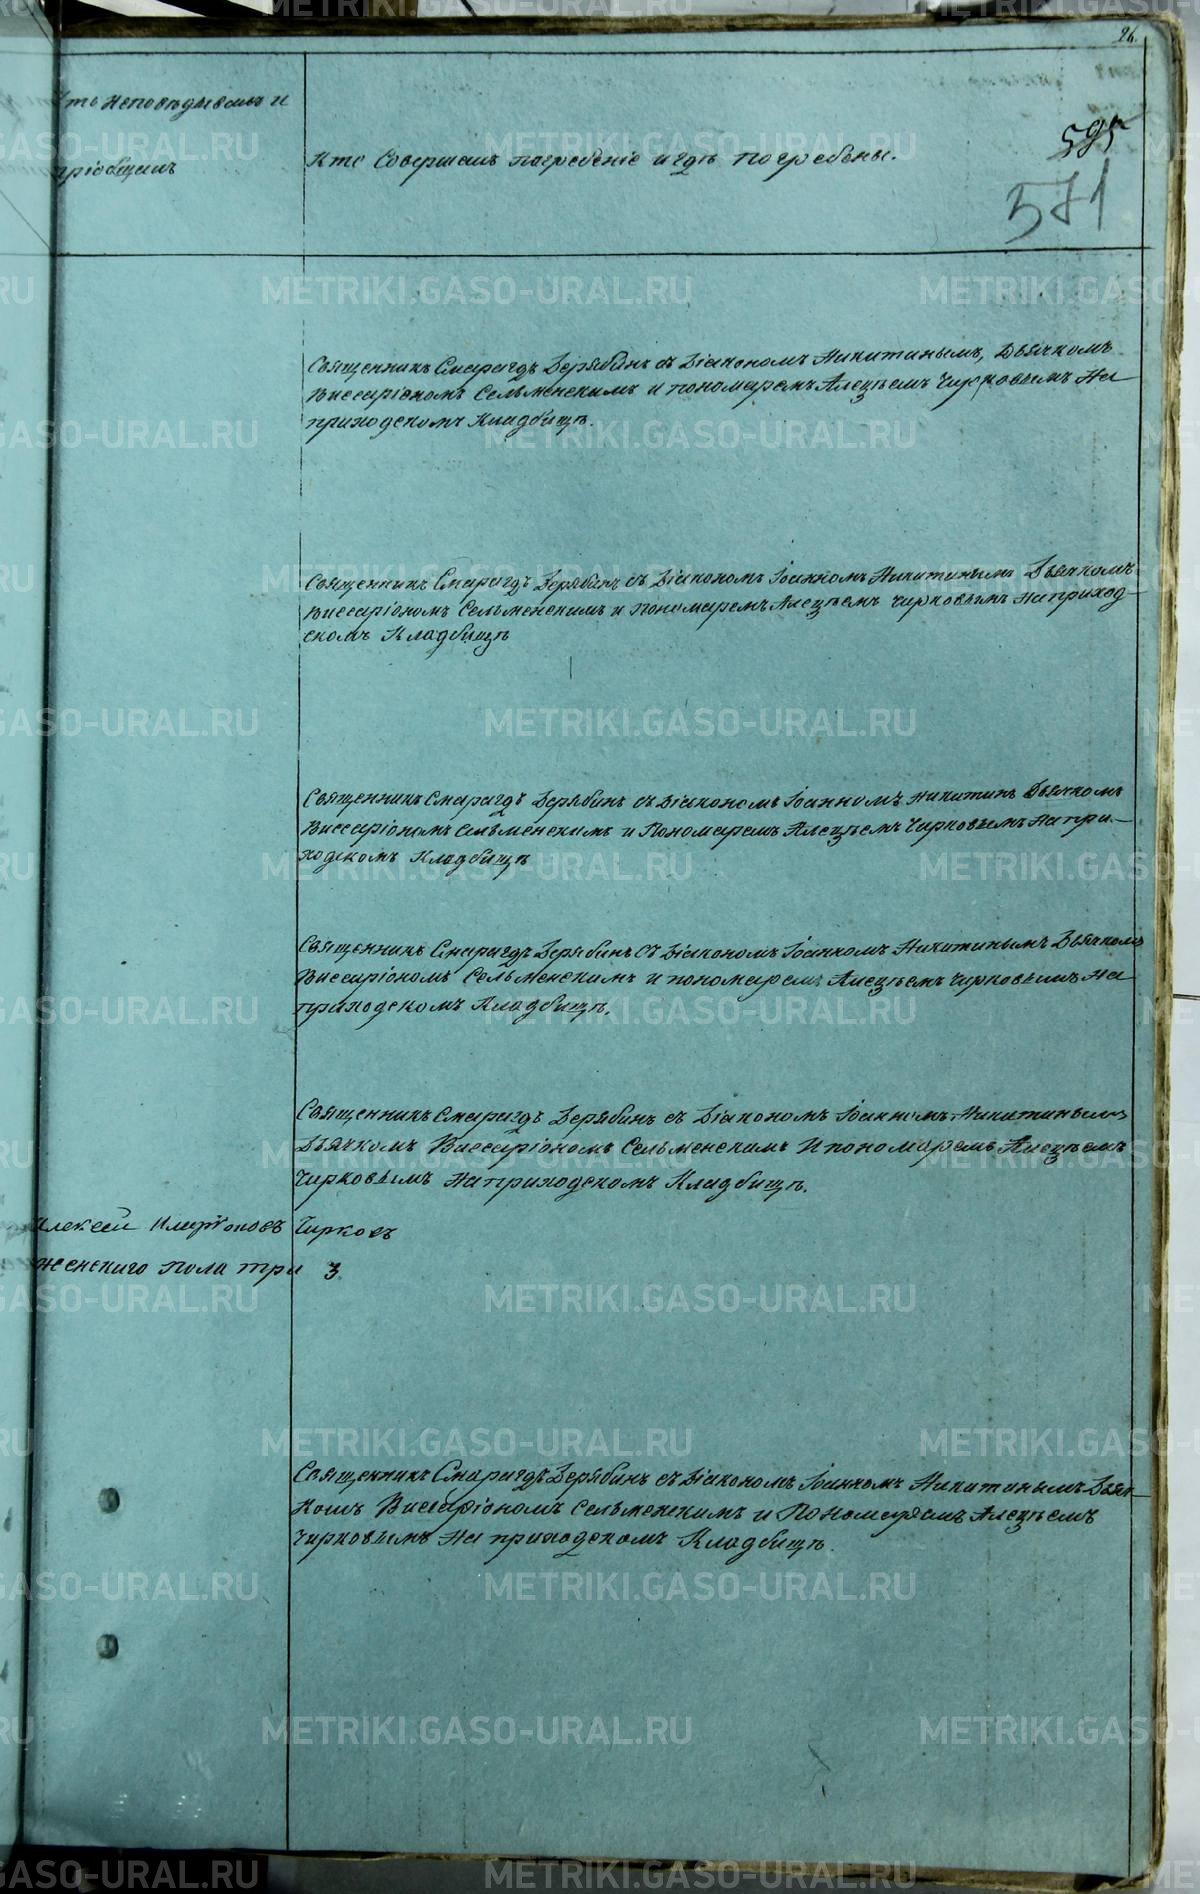 26.
595
571
Кто исповѣдывалъ и
пріобщалъ
Кто Совершалъ погребеніе и гдѣ погребены.
Священникъ Смарагдъ Дерябинъ съ Діакономъ Никитинымъ, Дьячкомъ
Виссаріономъ Сельменскимъ и пономаремъ Алексѣемъ Чирковымъ На
приходскомъ Кладбищѣ.
Священникъ Смарагдъ Дерябинъ съ Діакономъ Іоанномъ Никитинымъ Дьячкомъ
Виссаріономъ Сельменскимъ и Пономаремъ Алексѣемъ Чирковымъ На приход-
скомъ Кладбищѣ
Священникъ Смарагдъ Дерябинъ съ Діакономъ Іоанномъ Никитин Дьячкомъ
Виссаріономъ Сельменскимъ и Пономаремъ Алексѣемъ Чирковымъ На при-
ходскомъ Кладбищѣ
Священникъ Смарагдъ Дерябинъ Съ Діакономъ Іоанномъ Никитинымъ Дьячкомъ
Виссаріономъ Сельменскимъ и пономаремъ Алексѣемъ Чирковымъ На
приходскомъ Кладбищѣ.
Священникъ Смарагдъ Дерябинъ съ Діакономъ Іоанномъ Никитинымъ
Дьячкомъ Виссаріономъ Сельменскимъ И пономаремъ Алексѣемъ
Чирковымъ На приходскомъ Кладбищѣ.
Алексей Иларіоновъ Чирковъ
женскаго пола три 3.
Священникъ Смарагдъ Дерябинъ съ Діакономъ Іоанномъ Никитинымъ Дьяч-
комъ Виссаріономъ Сельменскимъ и Пономаремъ Алексѣемъ
Чирковымъ На приходскомъ Кладбищѣ.
METRIKI.GASO-URAL.RU